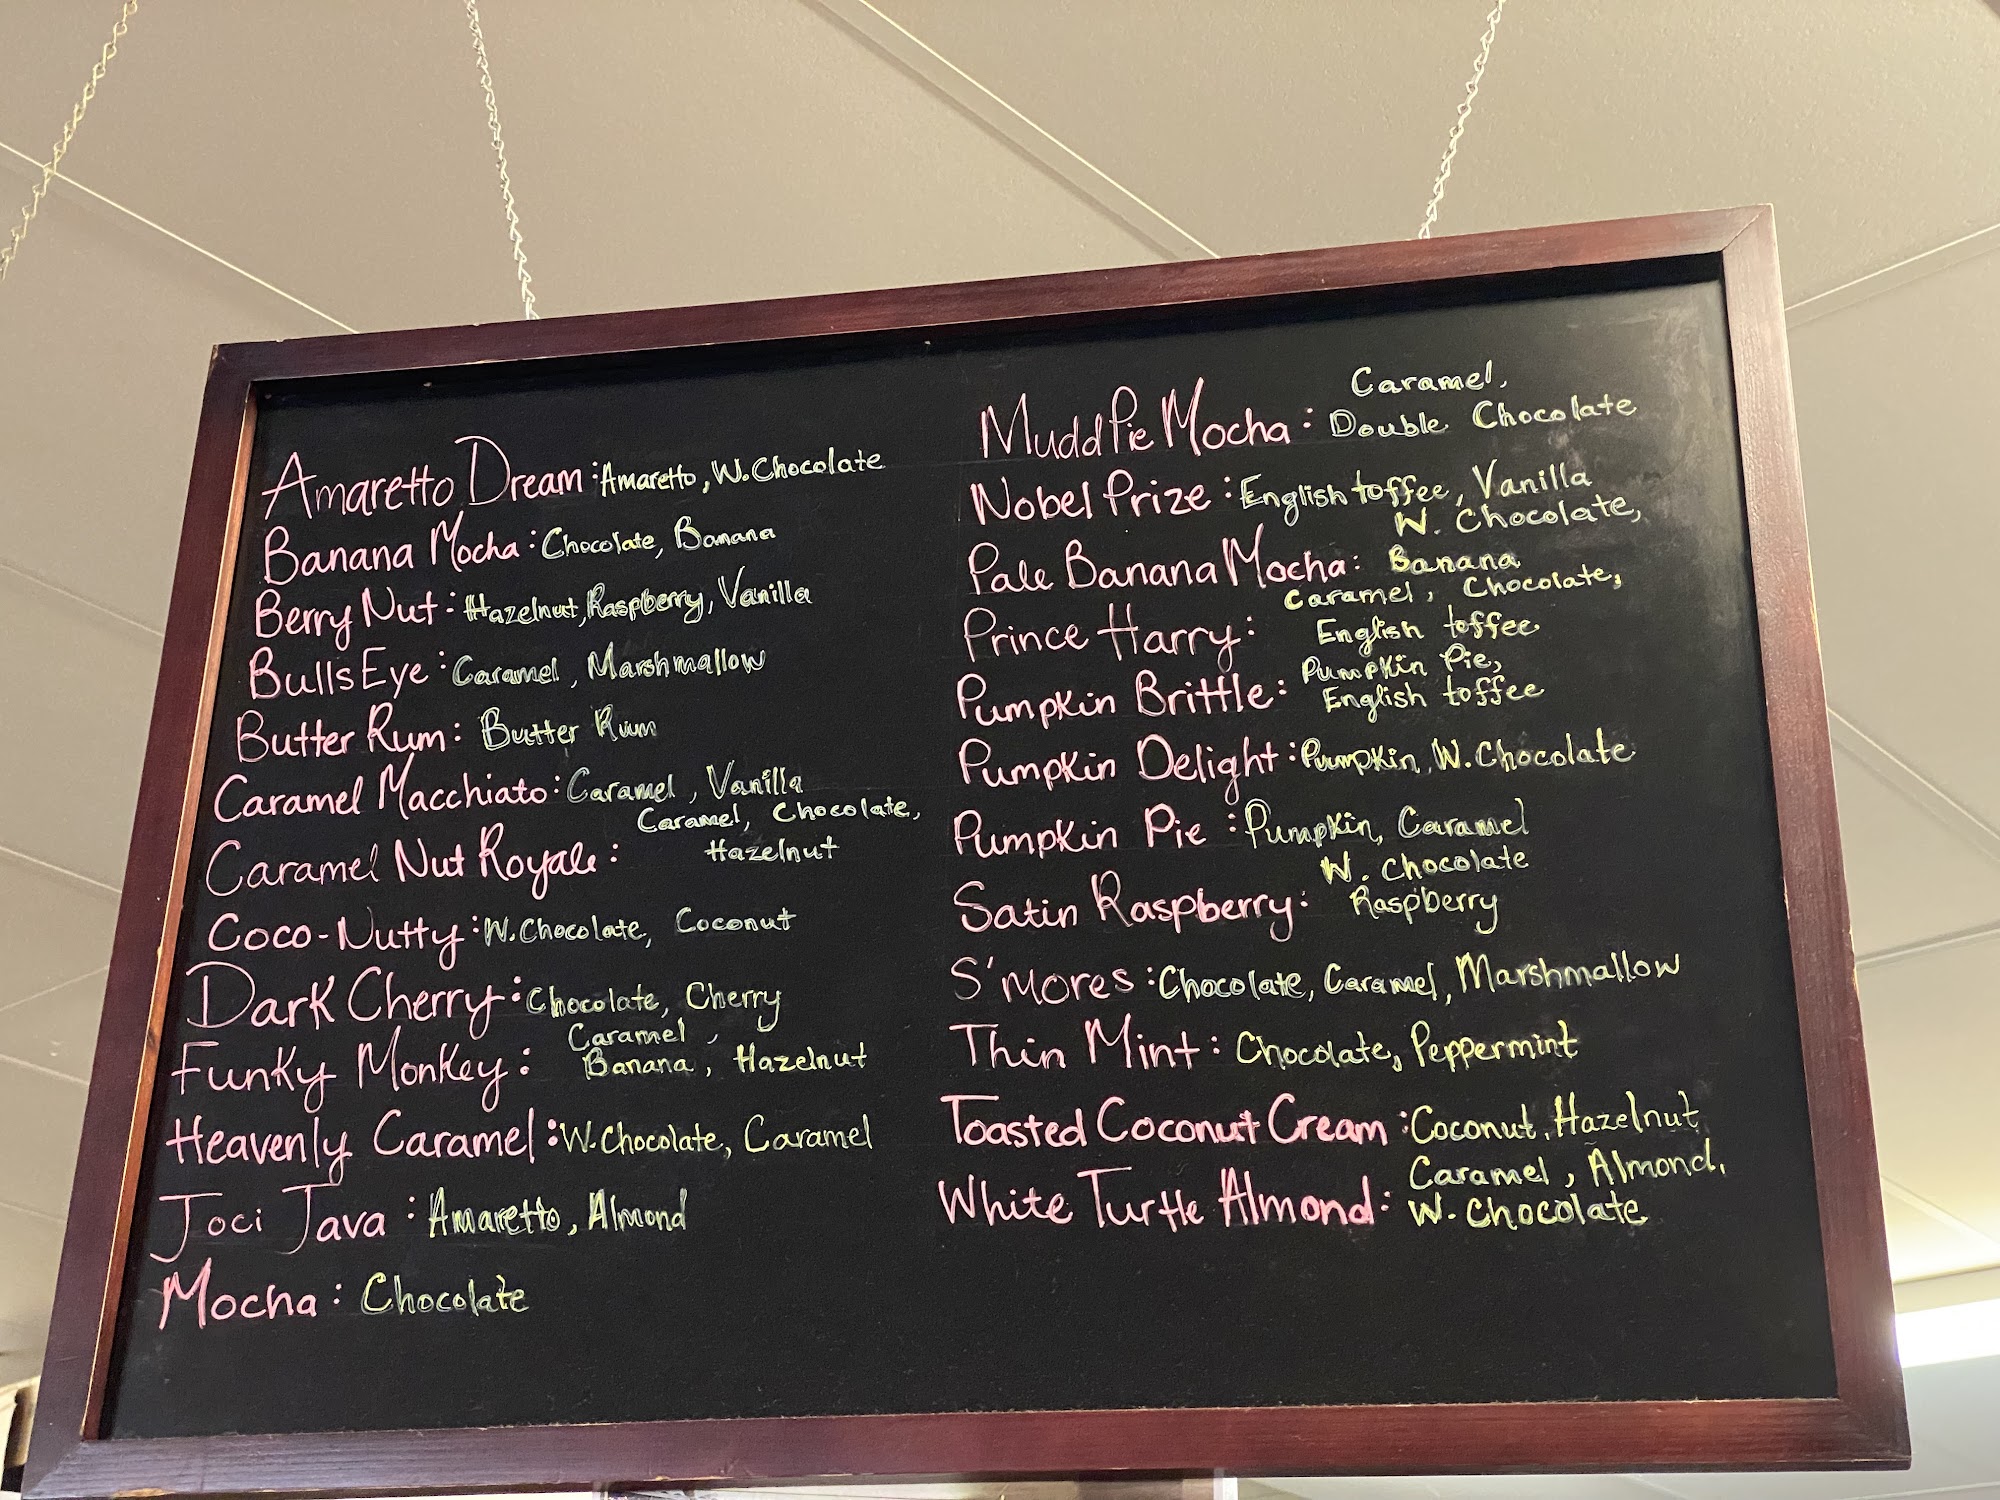 Amaretto Dream: Amaretto, W. Chocolate
Banana Mocha: Chocolate, Banana
Berry Nut: Hazelnut, Raspberry, Vanilla
BullsEye: Caramel, Marshmallow
Butter Rum: Butter Rum
Caramel Macchiato: Caramel, Vanilla
Caramel Nut Royale: Caramel, Chocolate,
Hazelnut
Coco-Nutty: W. Chocolate, Coconut
Dark Cherry: Chocolate, Cherry
Funky Monkey: Caramel,
Banana, Hazelnut
Heavenly Caramel: W. Chocolate, Caramel
Joci Java: Amaretto, Almond
Mocha: Chocolate
Mudd Pie Mocha: Caramel,
Double Chocolate
Nobel Prize: English toffee, Vanilla
Pale Banana Mocha: W. Chocolate,
Banana
Prince Harry: Caramel, Chocolate,
English toffee
Pumpkin Brittle: Pumpkin Pie,
English toffee
Pumpkin Delight: Pumpkin, W. Chocolate
Pumpkin Pie: Pumpkin, Caramel
Satin Raspberry: W. Chocolate
Raspberry
S'mores: Chocolate, Caramel, Marshmallow
Thin Mint: Chocolate, Peppermint
Toasted Coconut Cream: Coconut, Hazelnut
White Turtle Almond: Caramel, Almond,
W. Chocolate